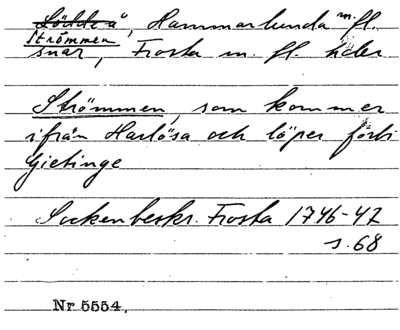 Lödde å, Hammarlunda m. fl.
Strömmen
snar, Frosta m. fl. hder
Strömmen, som kommer
ifrån Harlösa och löper förbi
Gietinge
Sockenbeskr. Frosta 1746-47
s. 68
Nr 5554.